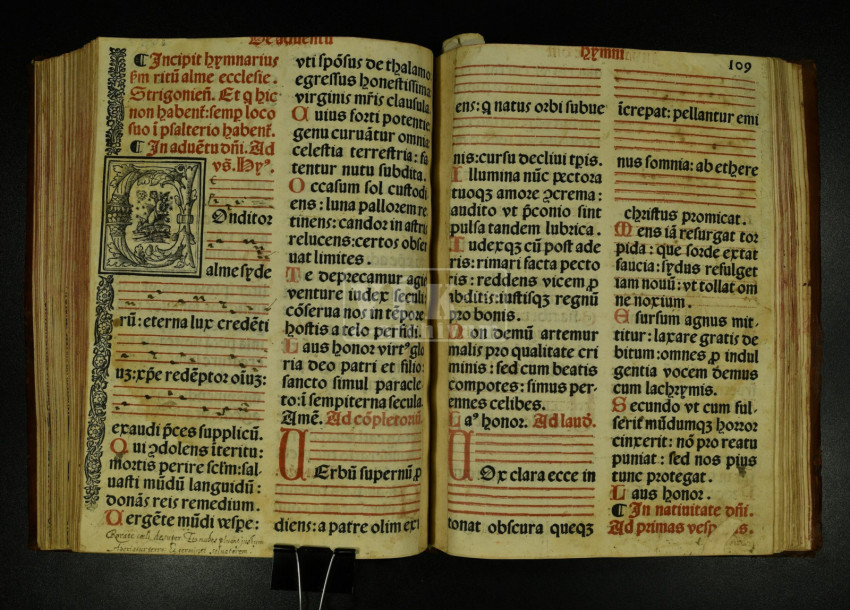 De aduentu
¶ Incipit hymnarius
scďm ritū alme ecclesie.
Strigonieñ. Et q hic
non habent̃: semp loco
suo ī psalterio habent̃.
¶ In aduētu dñi. Ad
vs̃. Hyꝰ.
COnditor
alme syde
rū: eterna lux credēti
uꝫ: xp̄e redēptor oīuꝫ:
exaudi p̄ces supplicū.
Qui ꝯdolens īteritu:
mortis perire scl̄m: sal-
uasti mūdū languidū:
donās reis remedium.
Uergēte mūdi vesp̄e:
vti spōsus de thalamo
egressus honestissima
virginis mr̄is clausula.
Cuius forti potentie:
genu curuātur omnia
celestia terrestria: fa
tentur nutu subdita.
Occasum sol custodi
ens: luna pallorem re
tinens: candor in astris
relucens: certos obser
uat limites.
Te deprecamur agie
venture iudex seculi:
cōserua nos in tēpore
hostis a telo perfidi.
Laus honor virtꝰ glo
ria deo patri et filio:
sancto simul paracle-
to: ī sempiterna secula.
Amē. Ad cōpletoriū.
UErbū supernū ꝓ
diens: a patre olim exi
Hymni
109
ens: q natus orbi subue
nis: cursu decliui tp̄is.
Illumina nūc pectora
tuoqꝫ amore ꝯcrema:
audito vt p̄conio sint
pulsa tandem lubrica.
Iudexqꝫ cū post ade
ris: rimari facta pecto
ris: reddens vicem ꝓ
abditis: iustisqꝫ regnū
pro bonis.
Non demū artemur
malis pro qualitate cri
minis: sed cum beatis
compotes: simus per-
ennes celibes.
Laꝰ honor. Ad laud̄.
UOx clara ecce in
tonat obscura queqꝫ
īcrepat: pellantur emi
nus somnia: ab ethere
christus promicat.
Mens iā resurgat tor
pida: que sorde extat
saucia: sydus refulget
iam nouū: vt tollat om
ne noxium.
E sursum agnus mit-
titur: laxare gratis de
bitum: omnes ꝓ indul
gentia vocem demus
cum lachrymis.
Secundo vt cum ful-
serit mūdumqꝫ horror
cinxerit: nō pro reatu
puniat: sed nos pius
tunc protegat.
Laus honor.
¶ In natiuitate dñi.
Ad primas vesp
Rorate coeli desuper Et nubes pluant justum
Aperiatur terra Et germinet saluatorem